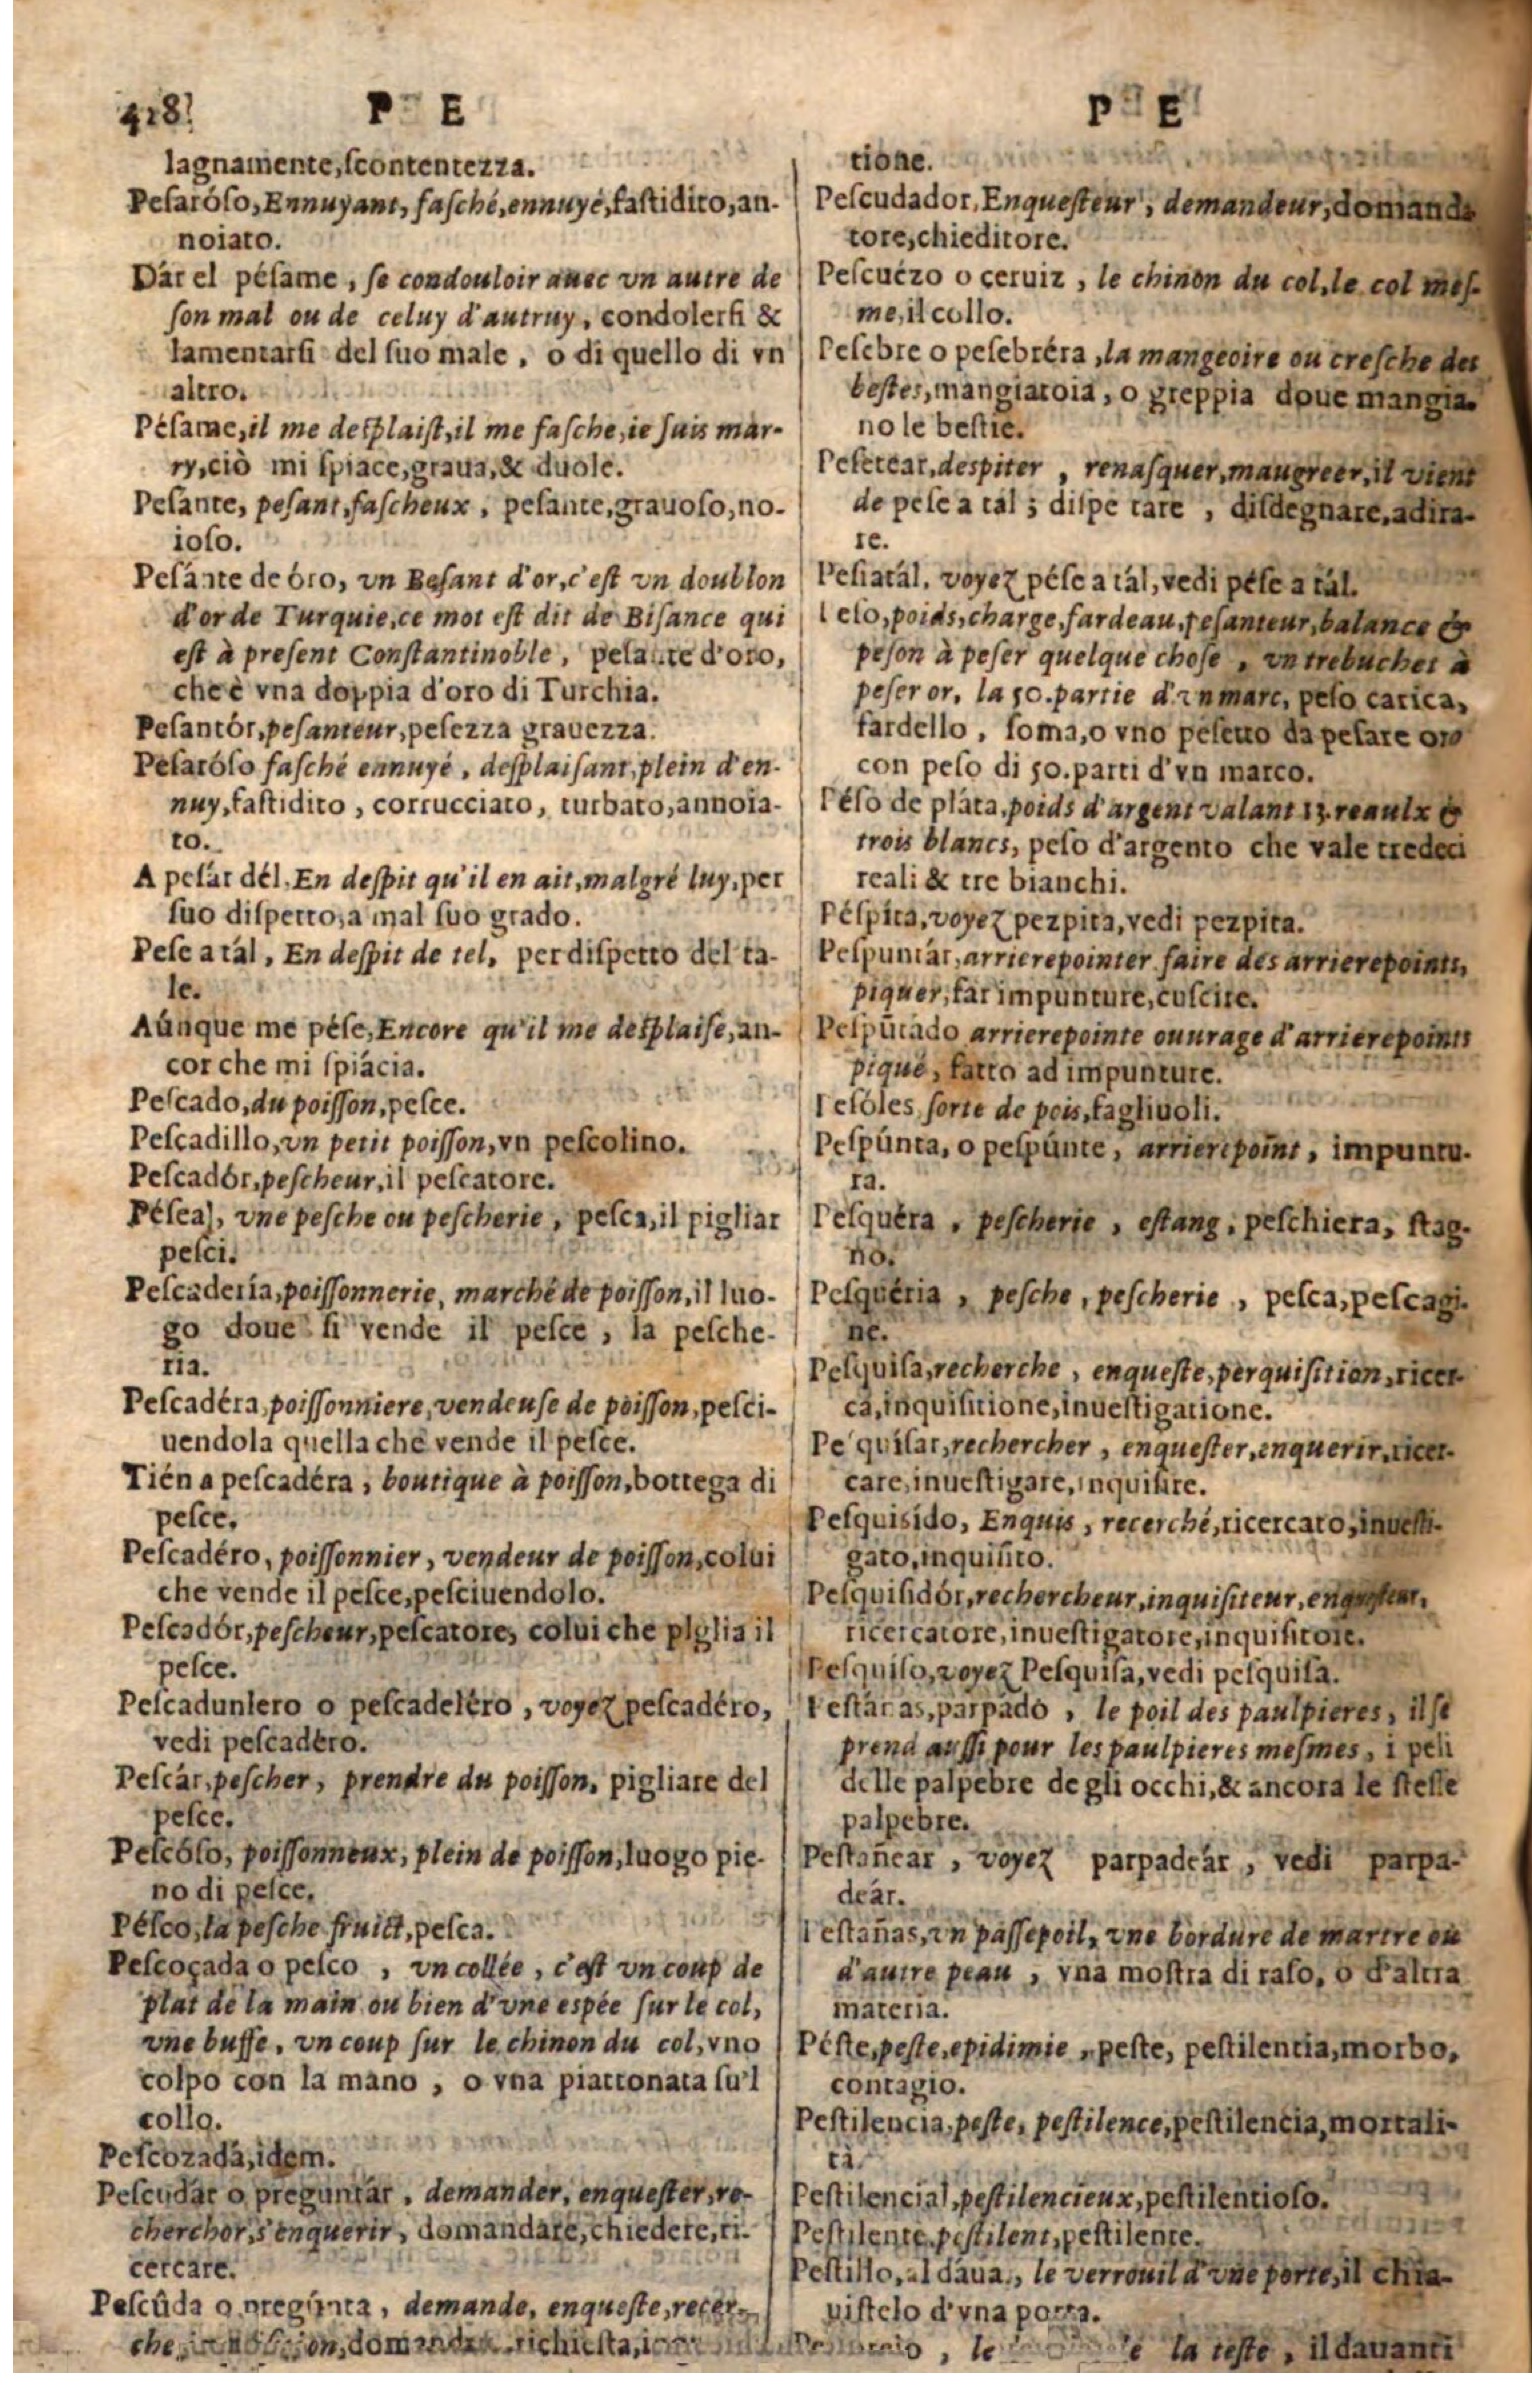 418
P E
lagnamente,ſcontentezza.
Peſaróſo,Ennuyant, faſché,ennuyé,faſtidito,an-
noiato.
Dár el péſame , ſe condouloir auec vn autre de
ſon mal ou de celuy d'autruy, condolerſi &
lamentarſi del ſuo male , o di quello di vn
altro.
Péſame,il me deſplaiſt,il me faſche,ie ſuis mar-
ry,ciò mi ſpiace,graua,& duole.
Peſante, peſant,faſcheux , peſante,grauoſo,no-
ioſo.
Peſánte de óro, vn Beſant d'or,c'eſt vn doublon
d'or de Turquie,ce mot eſt dit de Biſance qui
eſt à preſent Conſtantinoble, peſante d'oro,
che è vna doppia d'oro di Turchia.
Peſantór,peſanteur,peſezza grauezza.
Peſaróſo faſché ennuyé , deſplaiſant,plein d'en-
nuy,faſtidito , corrucciato, turbato,annoia-
to.
A peſár dél,En deſpit qu'il en ait,malgré luy,per
ſuo diſpetto,a mal ſuo grado.
Peſe a tál , En deſpit de tel, per diſpetto del ta-
le.
Aúnque me péſe,Encore qu'il me deſplaiſe,an-
cor che mi ſpiácia.
Peſcado,du poiſſon,peſce.
Peſcadillo,vn petit poiſſon,vn peſcolino.
Peſcadór,peſcheur,il peſcatore.
Péſcal, vne peſche ou peſcherie , peſca,il pigliar
peſci.
Peſcadería,poiſſonnerie, marché de poiſſon,il luo-
go doue ſi vende il peſce , la peſche-
ria.
Peſcadéra,poiſſonniere,vendeuſe de poiſſon,peſci-
uendola quella che vende il peſce.
Tién a peſcadéra , boutique à poiſſon,bottega di
peſce.
Peſcadéro, poiſſonnier, vendeur de poiſſon,colui
che vende il peſce,peſciuendolo.
Peſcadór,peſcheur,peſcatore, colui che pIglia il
peſce.
Peſcadunlero o peſcadeléro , voyez peſcadéro,
vedi peſcadéro.
Peſcár,peſcher, prendre du poiſſon, pigliare del
peſce.
Peſcóſo, poiſſonneux, plein de poiſſon,luogo pie-
no di peſce.
Péſco,la peſche fruict,peſca.
Peſcoçada o peſco , vn collée , c'eſt vn coup de
plat de la main ou bien d'vne espée ſur le col,
vne buffe , vn coup ſur le chinon du col,vno
colpo con la mano , o vna piattonata ſu'l
collo.
Peſcozadá,idem.
Peſcudár o preguntár , demander, enqueſter,re-
cherchor,s'enquerir, domandare,chiedere,ri-
cercare.
Peſcûda o pregúnta , demande, enqueſte,recer-
che, domanda richieſta,
P E
tione.
Peſcudador,Enqueſteur , demandeur,domanda
tore,chieditore.
Peſcuézo o ceruiz , le chinon du col,le col meſ-
me,il collo.
Peſebre o peſebréra ,la mangeoire ou creſche des
beſtes,mangiatoia , o greppia doue mangia-
no le beſtie.
Peſetear,deſpiter , renaſquer,maugreer,il vient
de peſe a tál ; diſpe tare , diſdegnare,adira-
re.
Peſiatál, voyez péſe a tál,vedi péſe a tál.
Peſo,poids,charge,fardeau,peſanteur,balance &
peſon à peſer quelque choſe , vn trebuchet à
peſer or, la 50.partie d'vn marc, peſo carica,
fardello , ſoma,o vno peſetto da peſare oro
con peſo di 50.parti d'vn marco.
Péſo de pláta,poids d'argent valant 13.reaulx &
trois blancs, peſo d'argento che vale tredeci
reali & tre bianchi.
Péſpita,voyez pezpita,vedi pezpita.
Peſpuntár,arrierepointer faire des arrierepoints,
piquer,far impunture,cuſcire.
Peſpũtádo arrierepointe ouurage d'arrierepoints
piqué, fatto ad impunture.
Peſóles ſorte de pois,fagliuoli.
Peſpúnta, o peſpúnte, arrierepoint , impuntu-
ra.
Peſquéra , peſcherie , eſtang , peſchiera, ſtag-
no.
Peſquéria , peſche , peſcherie , peſca,peſcagi-
ne.
Peſquiſa,recherche , enqueſte,perquiſition,ricer-
ca,inquiſitione,inueſtigatione.
Peſquiſar,rechercher , enqueſter,enquerir,ricer-
care,inueſtigare,inquiſire.
Peſquiſído, Enquis , recerché,ricercato,inueſti-
gato,inquiſito.
Peſquiſidór,rechercheur,inquiſiteur,enqueſteur,
ricercatore,inueſtigatore,inquiſitore.
Peſquiſo,voyez Peſquiſa,vedi peſquiſa.
Peſtáñas,parpado , le poil des paulpieres, il ſe
prend auſſi pour les paulpieres meſmes, i peli
delle palpebre de gli occhi,& ancora le ſteſſe
palpebre.
Peſtañear , voyez parpadeár , vedi parpa-
deár.
Peſtañas,vn paſſepoil, vne bordure de martre ou
d'autre peau , vna moſtra di raſo, o d'altra
materia.
Péſte,peſte,epidimie , peſte, peſtilentia,morbo,
contagio.
Peſtilencia,peſte, peſtilence,peſtilencia,mortali-
tà.
Peſtilencial,peſtilencieux,peſtilentioſo.
Peſtilente,peſtilent,peſtilente.
Peſtillo,aldáua, le verrouil d'vne porte,il chia-
uiſtelo d'vna porta.
, le la teſte , il dauanti